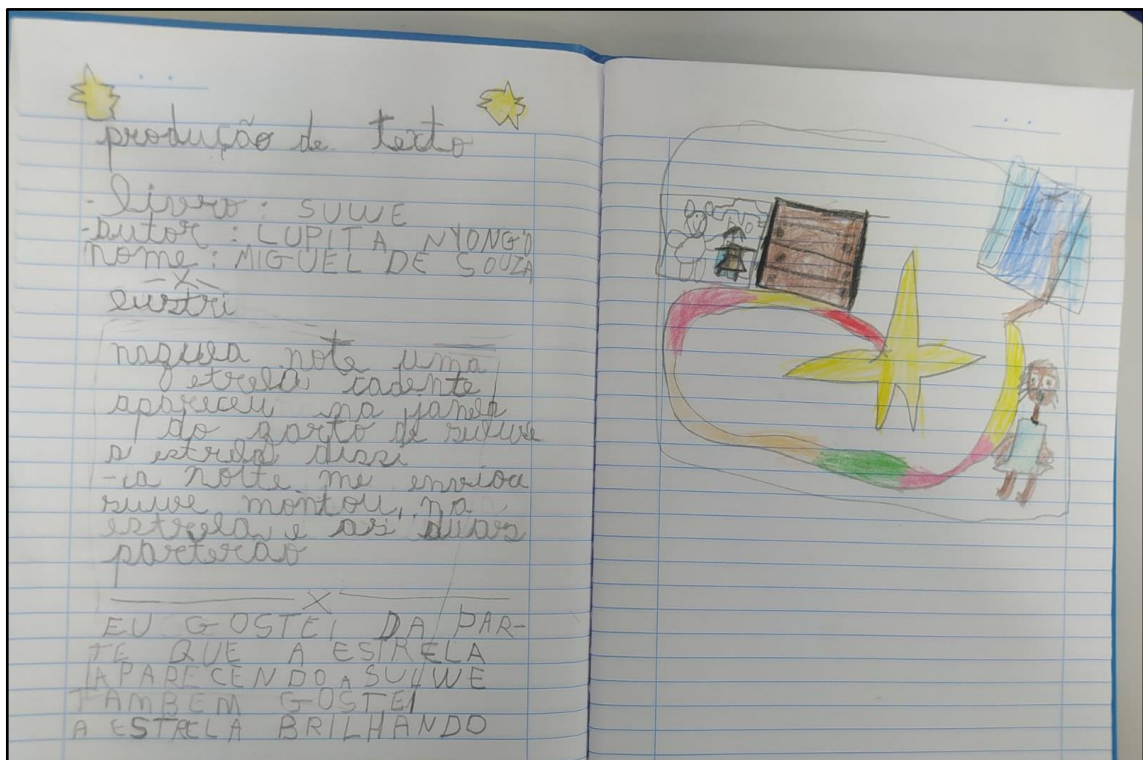 produção de texto
- livro: SUWE
- autor: LUPITA NYONG'O
nome: MIGUEL DE SOUZA
X
naquela note uma
etrela cadente
apareceu na janela
do qarto de suluwe
a estrela dissi
- a noite me enviou
suwe montou na
estrela e as duas
parterão
X
EU GOSTEI DA PAR-
TE QUE A ESTRELA
APARECENDO A SULUWE
TAMBEM GOSTEI
A ESTRELA BRILHANDO